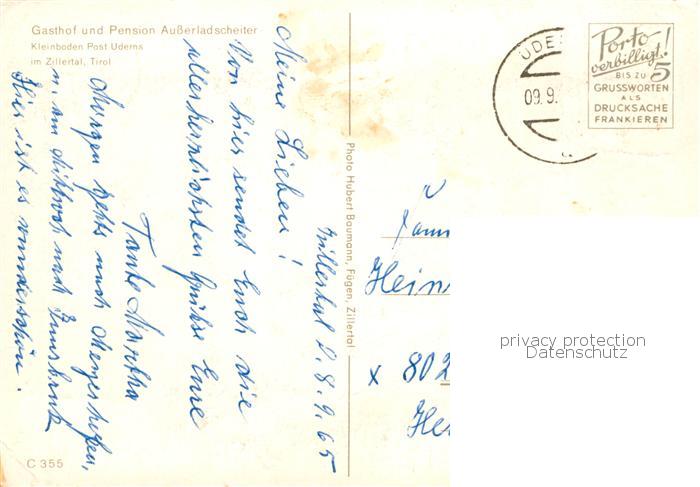 Gasthof und Pension Außerladscheiter
Kleinboden Post Uderns
im Zillertal, Tirol
Porto
verbilligt!
BIS ZU 5
GRUSSWORTEN
ALS
DRUCKSACHE
FRANKIEREN
UDE
09.9.
Zillertal d. 8.9.65
Meine Lieben!
Von hier sendet Euch die
allerherzlichsten Grüße Eure
Tante Martha
Morgen gehts nach Mayerhofen,
u. am Mittwoch nach Innsbruk
Hier ist es wunderschön.
Photo Hubert Baumann, Fügen, Zillertal
Fam
Hein
x 802
He
privacy protection
Datenschutz
C 355